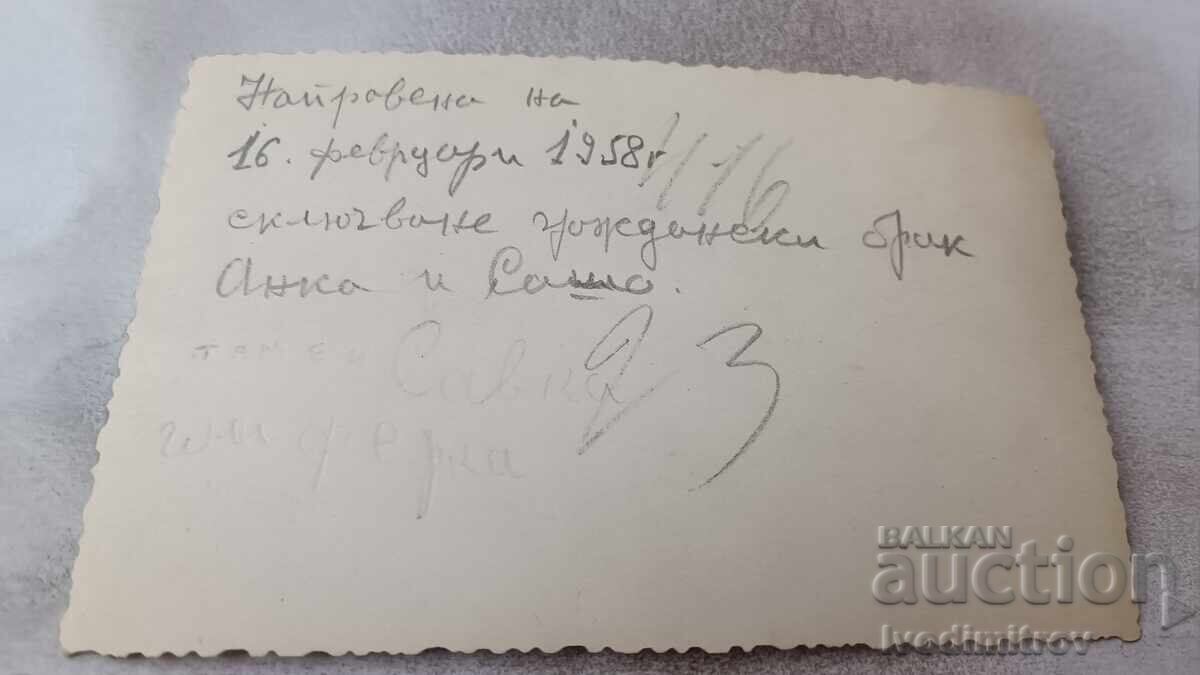 Направена на
16. февруари 1958г
1116
сключване граждански брак
Анка и Сашо.
Савка
93
шоферка
BALKAN
auction
Ivodimitrov